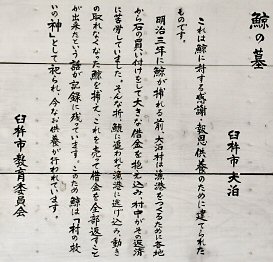 鯨の墓
臼杵市 大泊
これは鯨に対する感謝・報恩供養のために建てられた
ものです。
明治三年に鯨が捕れる以前、大泊村は漁港をつくるために各地
から石の買い付けをして大きな借金を抱え込み、村中がその返済
に苦労していました。そんな折、鯱に追われて漁港に逃げ込み、動き
の取れなくなった鯨を捕え、これを売って借金を全部返すこと
が出来たという話が記録に残っています。このため鯨は「村の救
いの神」として祀られ、今なお供養が行われています。
臼杵市教育委員会